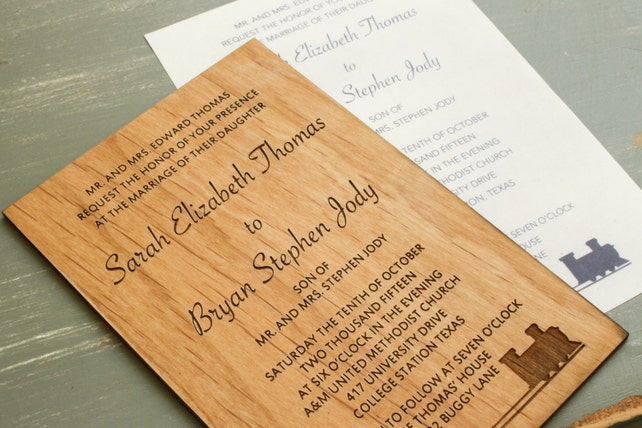 MR. AND MRS. EDWARD THOMAS
REQUEST THE HONOR OF YOUR PRESENCE
AT THE MARRIAGE OF THEIR DAUGHTER
Sarah Elizabeth Thomas
to
Bryan Stephen Jody
SON OF
MR. AND MRS. STEPHEN JODY
SATURDAY THE TENTH OF OCTOBER
TWO THOUSAND FIFTEEN
AT SIX O'CLOCK IN THE EVENING
A&M UNITED METHODIST CHURCH
417 UNIVERSITY DRIVE
COLLEGE STATION TEXAS
TO FOLLOW AT SEVEN O'CLOCK
THOMAS' HOUSE
2 BUGGY LANE
MR. AND MRS. EDWARD THOMAS
REQUEST THE HONOR OF YOUR PRESENCE
MARRIAGE OF THEIR DAUGHTER
Elizabeth Thomas
to
Stephen Jody
SON OF
MRS. STEPHEN JODY
TENTH OF OCTOBER
FIFTEEN
IN THE EVENING
METHODIST CHURCH
DRIVE
TEXAS
SEVEN O'CLOCK
HOUSE
LANE